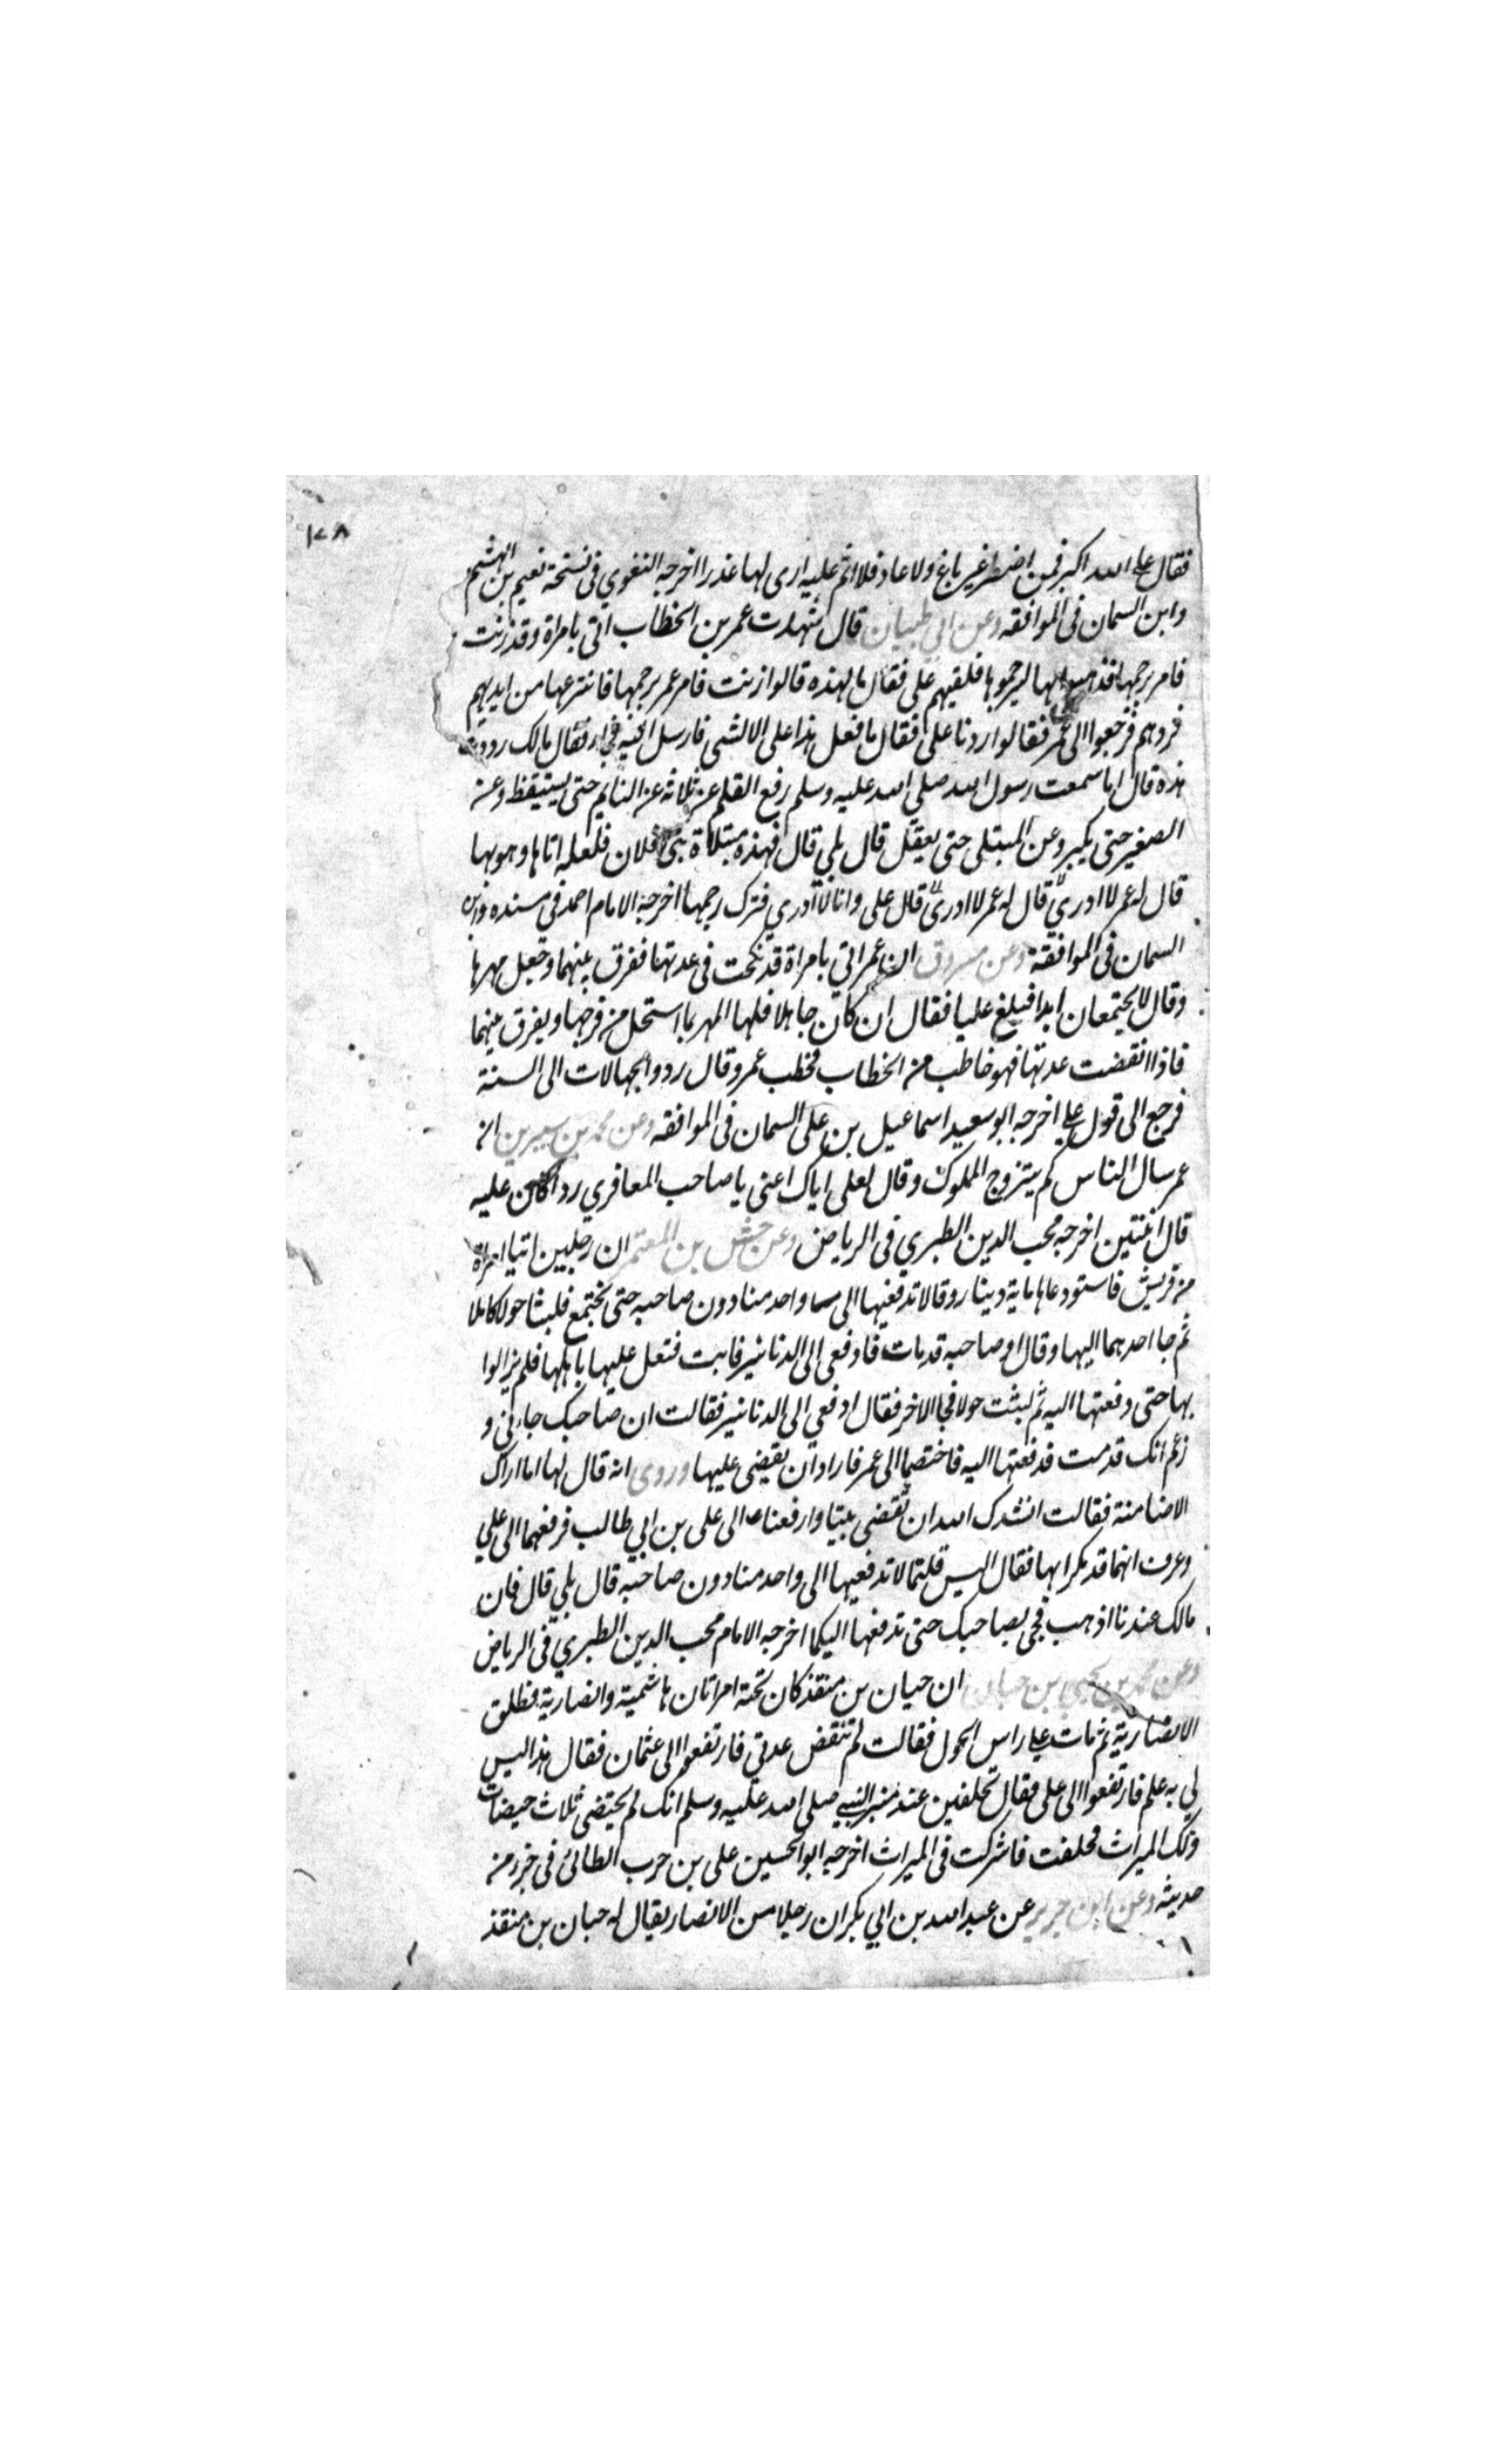 ١٧٨
فقال علي الله اكبر فمن اضطر غير باغ ولا عاد فلا اثم عليه ارى لها عذرا اخرجه البغوي فى نسخة نعيم بن الهشيم
وابن السمان فى الموافقه وعن ابي ظبيان قال شهدت عمر بن الخطاب اتى بامراة وقد زنت
فامر برجمها فذهبوا بها ليرجموها فلقيهم على فقال ما لهذه قالوا زنت فامر عمر برجمها فانتزعها من ايديهم
فردهم فرجعوا الى عمر فقالوا ردنا على فقال ما فعل هذا على الا لشى فارسل اليه فجا فقال مالك رددت
هذه قال اما سمعت رسول الله صلي الله عليه وسلم رفع القلم عن ثلاثة عن النايم حتى يستيقظ وعن
الصغير حتى يكبر وعن المبتلى حتى يعقل قال بلي قال فهذه مبتلاة بنى فلان فلعله اتاها وهو بها
قال له عمر لا ادري قال له عمر لا ادرى قال على وانا لا ادري فترك رجمها اخرجه الامام احمد فى مسنده وابن
السمان فى الموافقة وعن مسروق ان عمر اتي بامراة قد نكحت فى عدتها ففرق بينهما وجعل مهرها
وقال لا يجتمعان ابدا فبلغ عليا فقال ان كان جاهلا فلها المهر بما استحل من فرجها ويفرق بينهما
فاذا انقضت عدتها فهو خاطب من الخطاب فخطب عمر وقال ردوا الجهالات الى السنة
فرجع الى قول علي اخرجه ابو سعيد اسماعيل بن على السمان فى الموافقه وعن محمد بن سيرين ان
عمر سال الناس كم يتزوج المملوك وقال لعلى اياك اعنى يا صاحب المعافري ردا كان عليه
قال اثنتين اخرجه محب الدين الطبري فى الرياض وعن حنش بن المعتمر ان رجلين اتيا امراة
من قريش فاستودعاها ماية دينار وقالا تدفعيها الى واحد منا دون صاحبه حتى نجتمع فلبثا حولا كاملا
ثم جا احدهما اليها وقال ان صاحبه قد مات فادفعى الى الدنانير فابت فثقل عليها باهلها فلم يزالوا
بها حتى دفعتها اليه ثم لبثت حولا فجا الاخر فقال ادفعي الى الدنانير فقالت ان صاحبك جاءني و
زعم انك قد مت فدفعتها اليه فاختصما الى عمر فاراد ان يقضى عليها وروى انه قال لها ما اراك
الا ضامنة فقالت انشدك الله ان تقضى بيننا وارفعنا الى على بن ابي طالب فرفعهما الى علي
وعرف انهما قد مكرا بها فقال اليس قلتما لا تدفعيها الى واحد منا دون صاحبه قال بلي قال فان
مالك عندنا اذهب فجى بصاحبك حتى تدفعها اليكما اخرجه الامام محب الدين الطبري فى الرياض
وعن محمد بن يحيى بن حبان ان حبان بن منقذ كان تحته امراتان هاشمية وانصارية فطلق
الانصارية ثم مات على راس الحول فقالت لم تنقض عدتي فارتفعوا الى عثمان فقال هذا ليس
لي به علم فارتفعوا الى على فقال تحلفين عند منبر النبي صلى الله عليه وسلم انك لم تحيضى ثلاث حيضات
ولك الميراث فحلفت فاشركت فى الميراث اخرجه ابو الحسين على بن حرب الطائى فى جزء من
حديثه وعن ابن جرير عن عبد الله بن ابي بكر ان رجلا من الانصار يقال له حبان بن منقذ